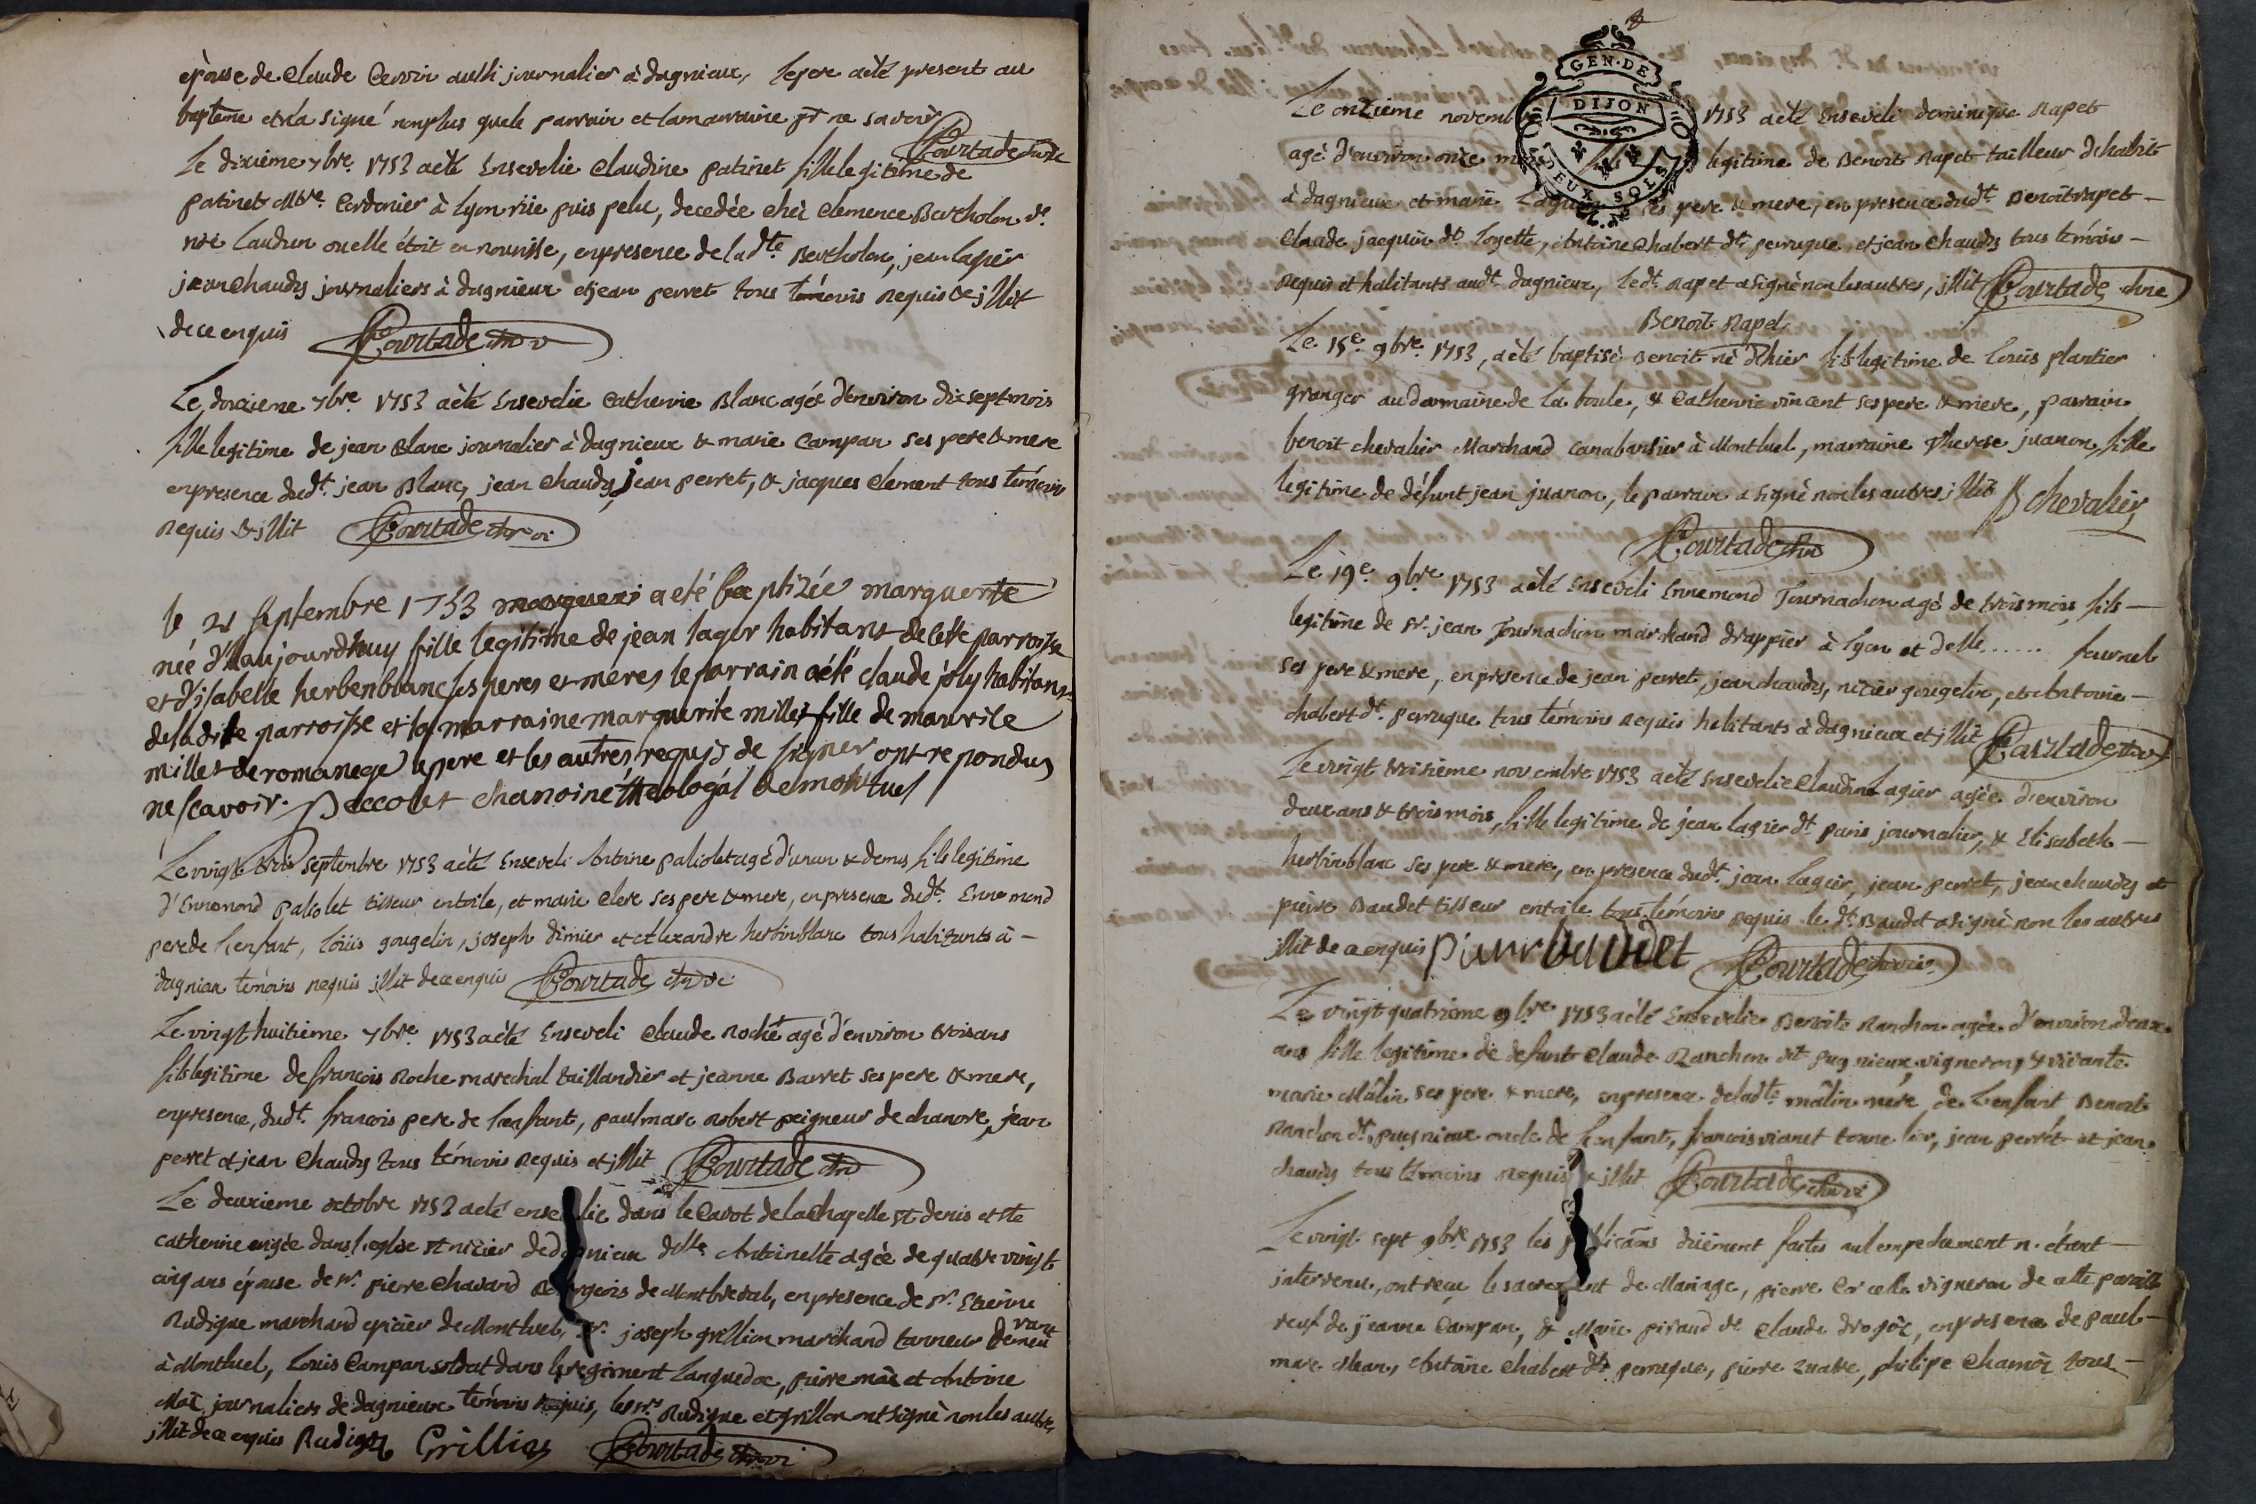 épouse de Claude Cervin aussi journalier à dagnieux, le pere a èté present au
baptême et n'a signé nonplus que le parrain et la marraine pr ne savoir
Courtade curé
Le dixième 7bre 1753 a èté Ensevelie Claudine patinet fille legitime de
patinet Mtre Cordonier à Lyon rüe puis pelu, decedée chéz Clemence Bertholon ve
noé Laudun ou elle étoit en nourisse, en presence de la dte Bertholon, jean lagier
jean Chaudy journaliers à dagnieux et jean perret tous témoins Requis & jllit
de ce enquis Courtade
Le douzieme 7bre 1753 a èté Ensevelie Catherine Blanc agée d'environ dix sept mois
fille legitime de jean Blanc journalier à dagnieux & marie Campan ses pere & mere
en presence dudt jean Blanc, jean Chaudy, jean perret, & jacques Clement tous témoins
Requis & jllit Courtade
le 21 septembre 1753 a eté baptizée marguerite
née d'aujourdhuy fille legitime de jean lager habitans de cette parroisse
et d'isabelle herbenblanc ses peres et meres le parrain a été claude joly habitans
de la dite parroisse et la marraine marguerite millet fille de maurile
millet de romanege le pere et les autres requis de signer ont repondus
ne scavoir. Peccolet chanoine théologal de montluel
Le vingt trois septembre 1753 a èté Enseveli Antoine paliolet agé d'un an & demis fils legitime
d'Ennemond paliolet tisseur en toile, et marie Clere ses pere & mere, en presence dudt Ennemond
pere de l'enfant, loüis gougelin, joseph dimier et Alexandre herbinblanc tous habitants à
dagnieu témoins requis jllit de ce enquis Courtade
Le vingt huitième 7bre 1753 a èté Enseveli Claude Roche agé d'environ trois ans
fils legitime de françois Roche marechal taillandier et jeanne Barret ses pere & mere,
en presence, dudt françois pere de l'enfant, paul marc Robert peigneur de chanvre, jean
perret et jean Chaudy tous témoins Requis et jllit Courtade
Le deuxieme octobre 1753 a eté ensevelie dans le Cavot de la Chapelle St denis et Ste
catherine erigée dans l'eglise St nicier de dagnieux delle Antoinette agée de quatre vingt
cinq ans épouse de Sr pierre Chavard Bourgeois de Montbreval, en presence de Sr Etienne
Rudigue marchand epicier de Montluel, Sr joseph grillion marchand tanneur demeu
rant
à Montluel, Louis Campan soldat dans le regiment Languedoc, pierre maé et Antoine
Maé journaliers de dagnieux témoins requis, les Srs Rudigue et grillon ont signé non les autres
jllit de ce enquis Rudigue Grillion Courtade
GEN. DE
DIJON
DEUX SOLS
Le onzieme novemb 1753 a èté Enseveli dominique Rapet
agé d'environ onze m legitime de Benoit Rapet tailleur d'habit
à dagnieux et marie Lag ses pere & mere, en presence dudt Benoit rapet
Claude jacquin dt loyette, Antoine Chabert dt perruque et jean Chaudy tous témoins
Requis et habitants audt dagnieux, ledt Rapet a signé non les autres, jllit Courtade curé
Benoit Rapet
Le 15e 9bre 1753, a èté baptisé Benoit né d'hier fils legitime de loüis plantier
granger au domaine de la boule, & Catherine vincent ses pere & mere, parrain
benoit chevalier Marchand Canabassier à Montluel, marraine Therese juanon, fille
legitime de défunt jean juanon, le parrain a signé non les autres jllit B chevalier
Courtade
Le 19e 9bre 1753 a èté Enseveli Ennemond Tournachon agé de trois mois, fils
legitime de Sr jean Tournachon marchand drappier à Lyon et delle ...... fournel
ses pere & mere, en presence de jean perret, jean chaudy, nicier gougelin, et Antoine
chabert dt perruque tous témoins requis habitants à dagnieux et jllit Courtade
Le vingt troisième novembre 1753 a èté Ensevelie Claudine Lagier agée d'environ
deux ans & trois mois, fille legitime de jean lagier dt paris journalier, & Elisabeth
herbinblanc ses pere & mere, en presence dudt jean lagier, jean perret, jean chaudy et
pierre Baudet tisseur en toile tous témoins requis le dt Baudet a signé non les autres
jllit de ce enquis Courtade
Le vingt quatrième 9bre 1753 a èté Ensevelie Benoite Ranchon agée d'environ deux
ans fille legitime de defunt Claude Ranchon dit pugnieux, vigneron, & vivante
marie Mâlin ses pere & mere, en presence de ladte mâlin mere de l'enfant, Benoit
Ranchon dt pugnieux oncle de l'enfant, françois vianet tonnelier, jean perret et jean
chaudy tous témoins Requis & jllit Courtade
Le vingt sept 9bre 1753 les publicãns düement faites nul empechement n'étant
intervenu, ont reçu le sacrement de Mariage, pierre Corcelle vigneron de cette paroisse
veuf de jeanne Campan, & Marie piraud de Claude drogöe, en presence de paul
marc Mean, Antoine Chabert dt perruque, pierre quatre, philipe Chamöe tous